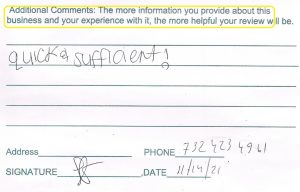 Additional Comments: The more information you provide about this
business and your experience with it, the more helpful your review will be.
quick & suffiaent!
Address PHONE 732 423 4961
SIGNATURE ,DATE 11/14/21